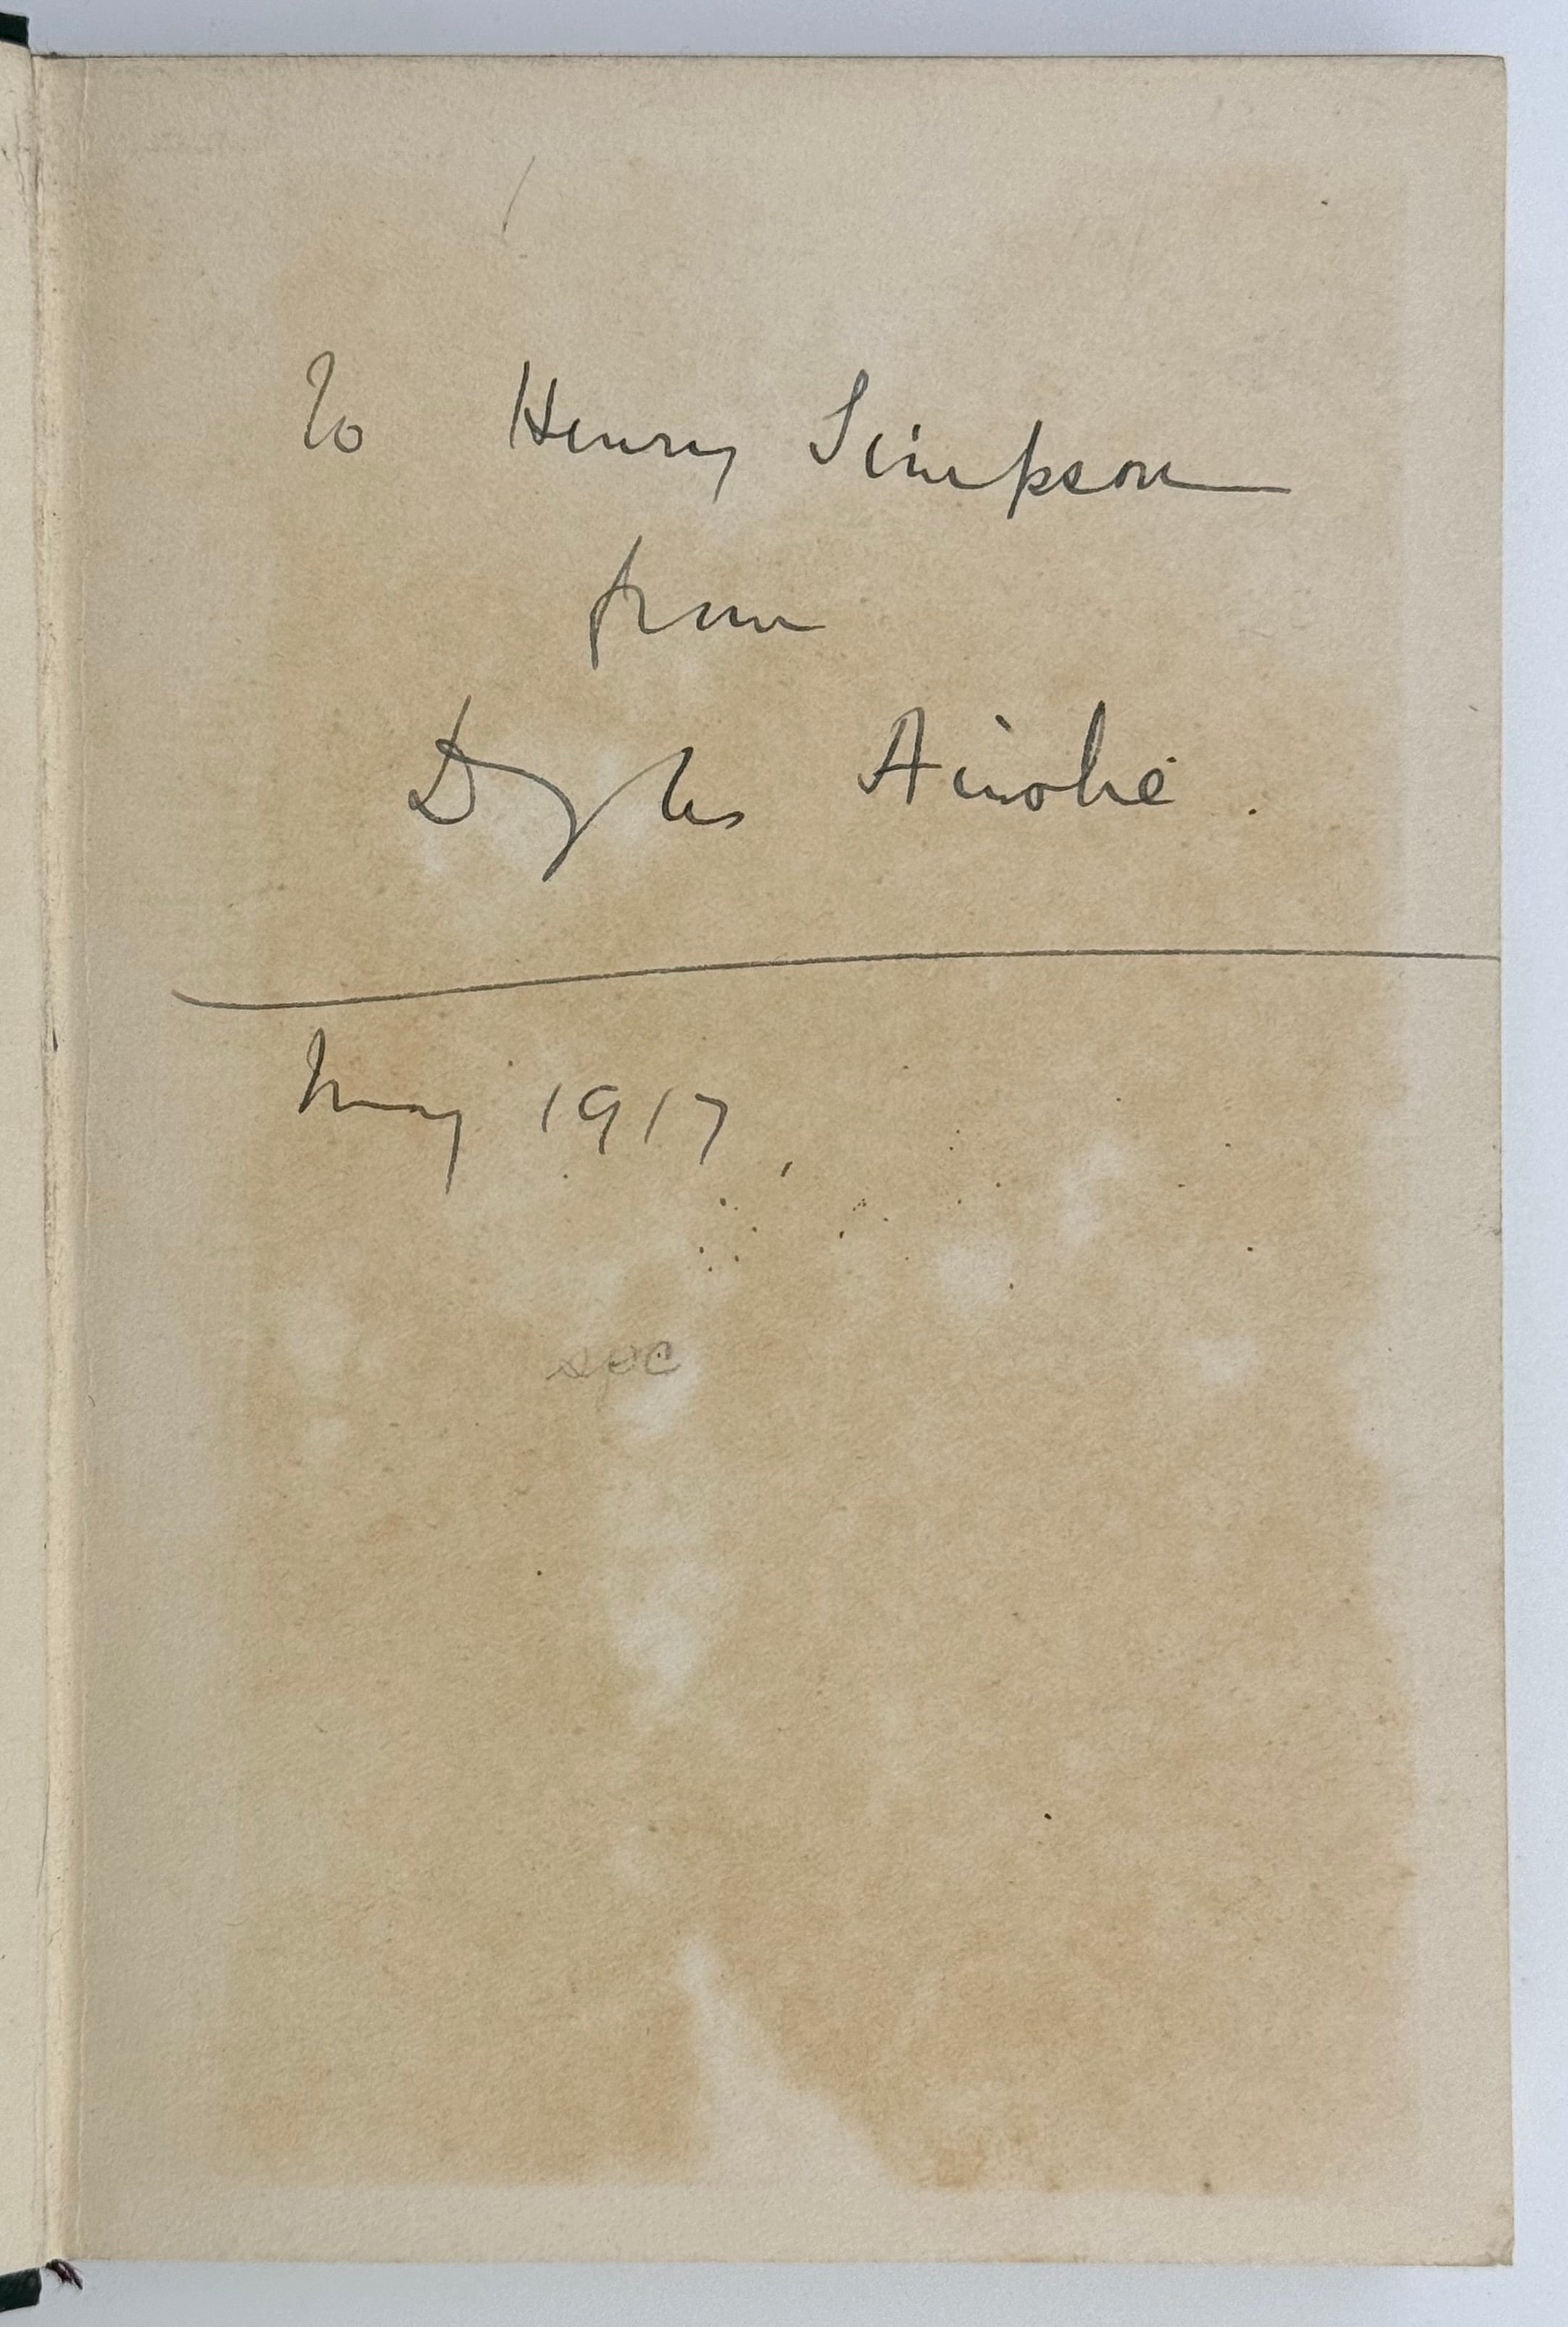 To Henry Simpson
from
Douglas Ainslie.
May 1917.